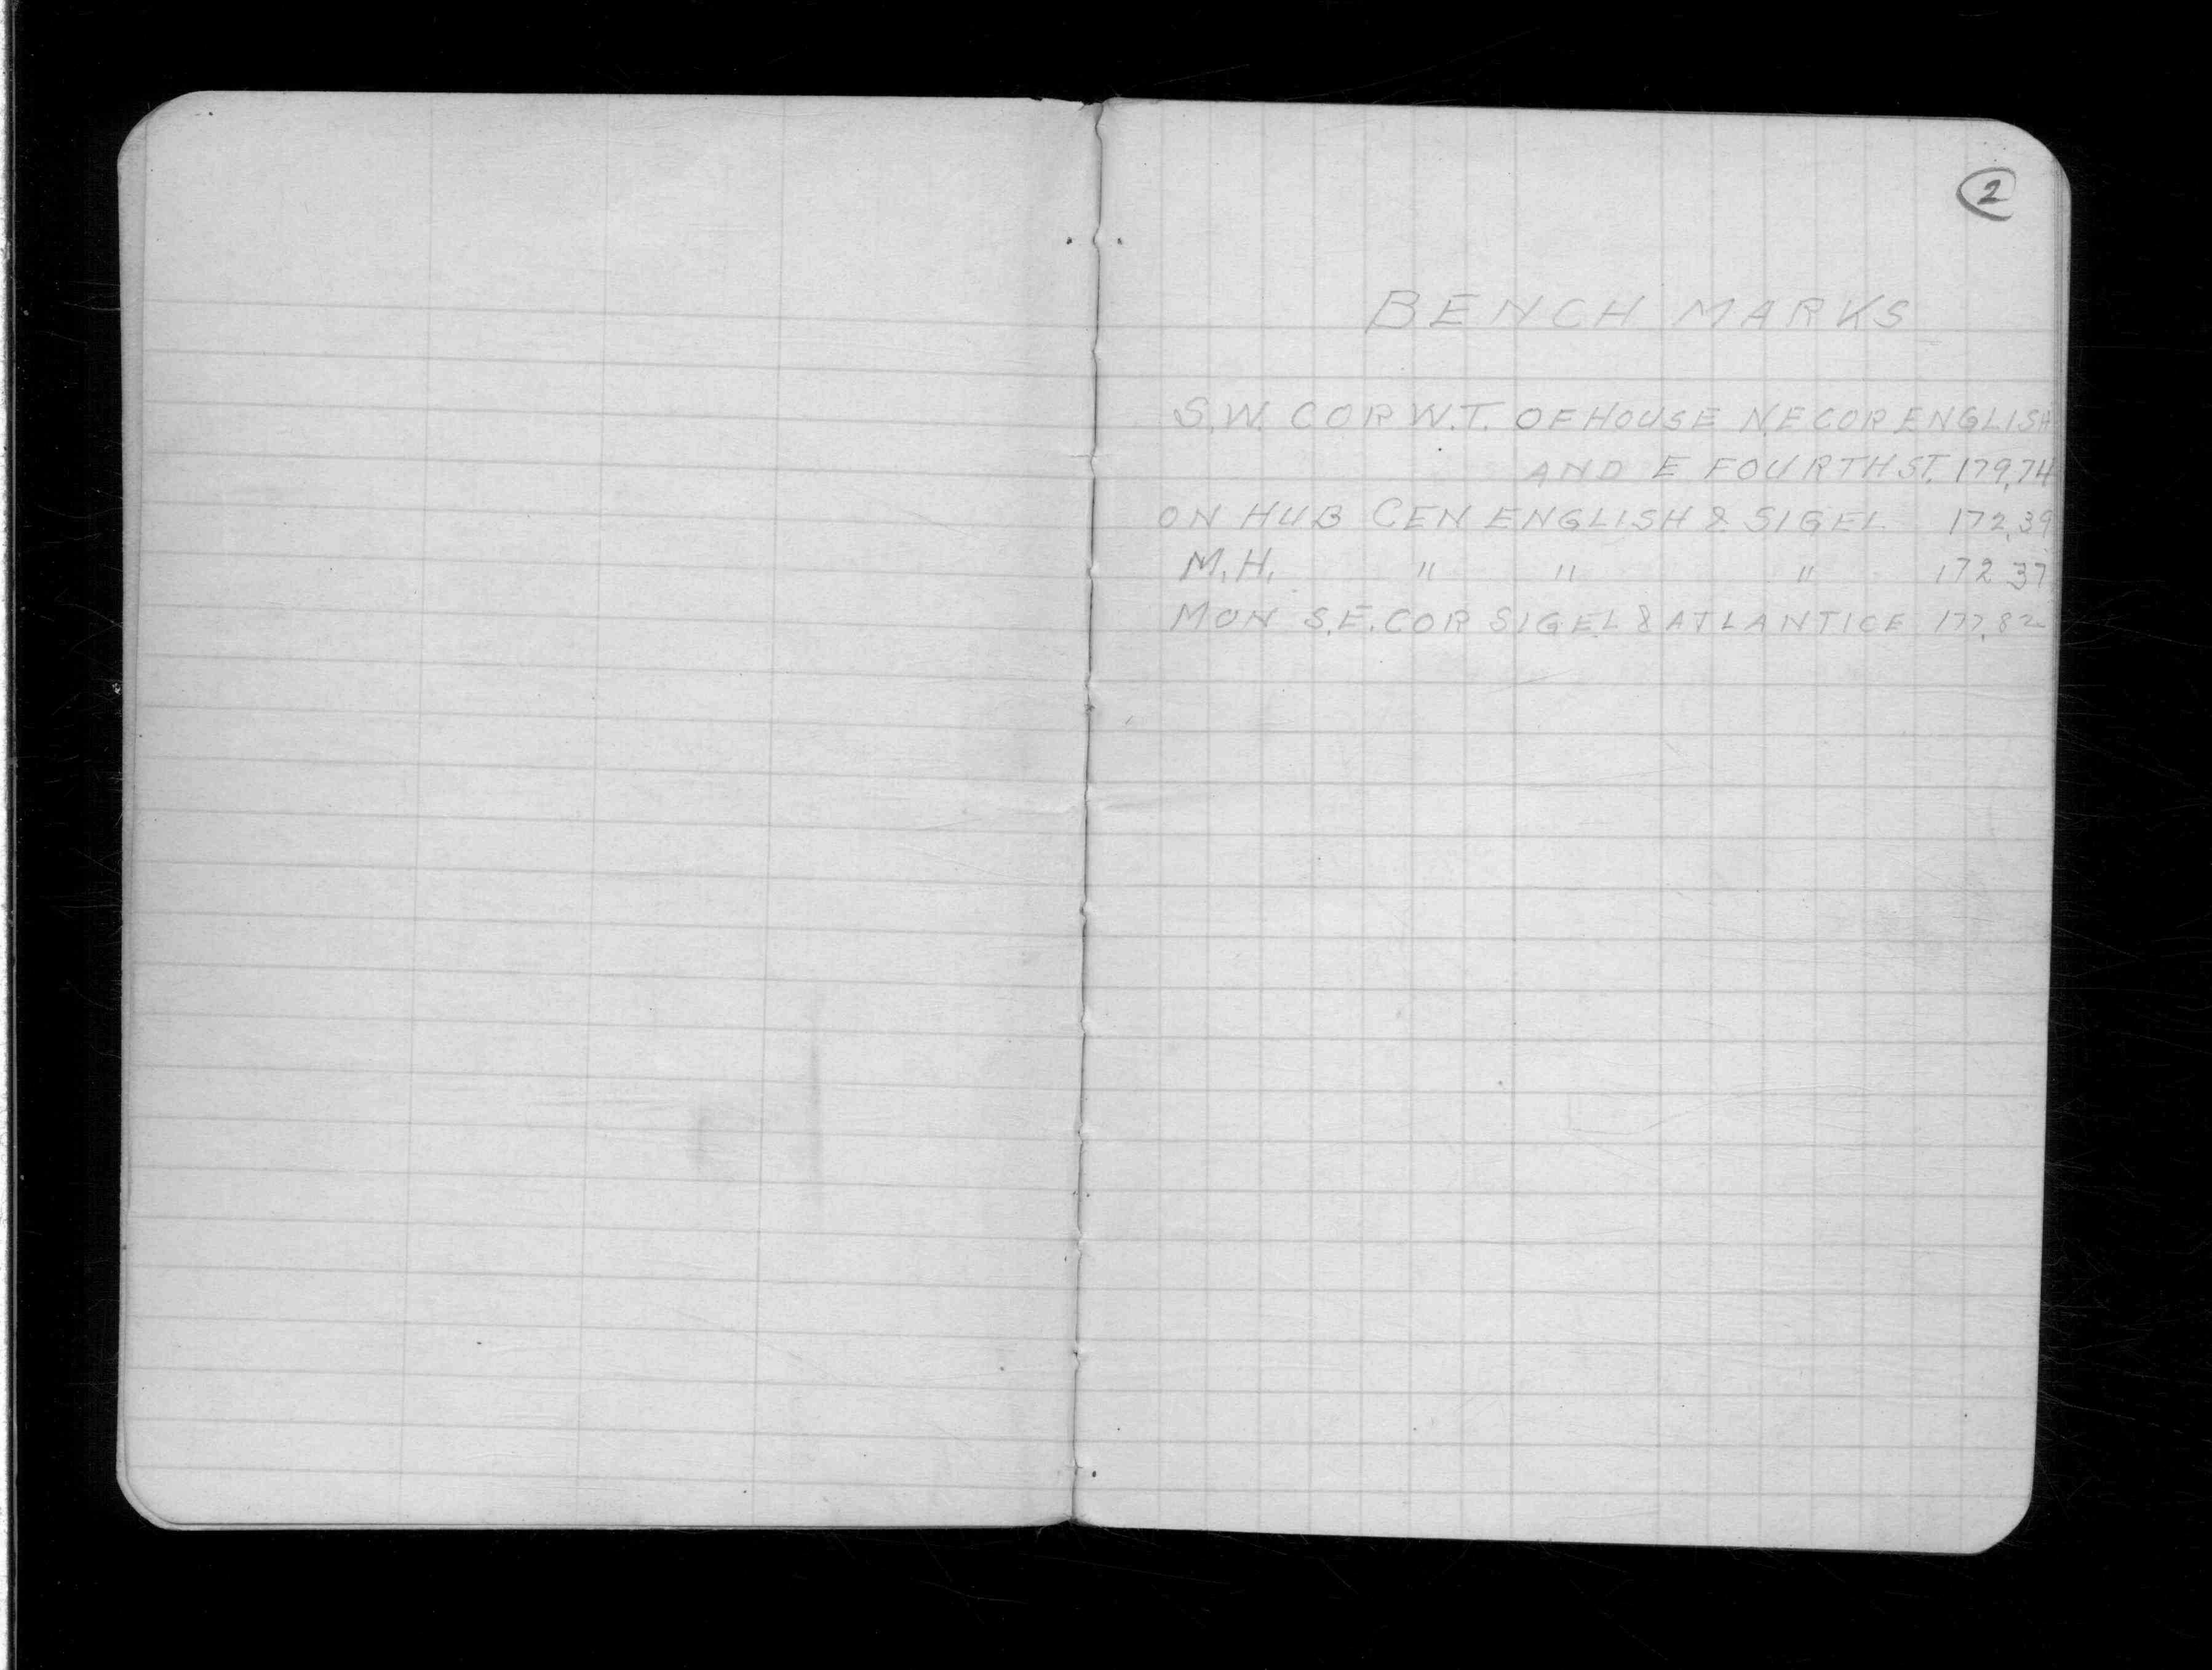 2
BENCH MARKS
S.W. COR W.T. OF HOUSE N.E COR ENGLISH
AND E FOURTH ST. 179.74
ON HUB CEN ENGLISH & SIGEL 172.39
M.H. " " " 172 37
MON S.E. COR SIGEL & ATLANTICE 177.82